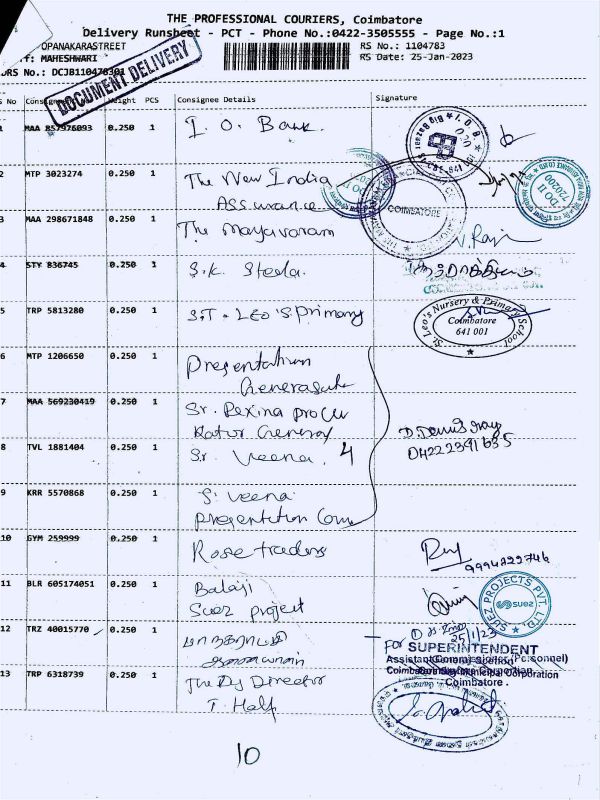 THE PROFESSIONAL COURIERS, Coimbatore
Delivery Runsheet - PCT - Phone No.:0422-3505555 - Page No.:1
OPANAKARASTREET RS No.: 1104783
f: MAHESHWARI RS Date: 25-Jan-2023
DRS No.: DCJB110478301
DOCUMENT DELIVERY
S No Consignment Weight PCS Consignee Details Signature
1 MAA 857976093 0.250 1 I. O. Bank.
2 MTP 3023274 0.250 1 The New India
Assurance
3 MAA 298671848 0.250 1 The mayavaram V. Raj
COIMBATORE
4 STY 836745 0.250 1 S.K. Steela.
5 TRP 5813280 0.250 1 S.T. LEO'S primary
St. Leo's Nursery & Primary School
Coimbatore
641 001
6 MTP 1206650 0.250 1 Presentation
Generalate
7 MAA 569230419 0.250 1 Sr. Rexina procu
Rator General
8 TVL 1881404 0.250 1 Sr. Veena. 4
04222391635
9 KRR 5570868 0.250 1 S. Veena
presentation Con
10 GYM 259999 0.250 1 Rose traders
9994299746
11 BLR 605174051 0.250 1 Balaji
Suez project
SUEZ PROJECTS PVT. LTD.
suez
12 TRZ 40015770 0.250 1
25/1/23
For SUPERINTENDENT
Assistant Commissioner (Personnel)
Coimbatore City Municipal Corporation
Coimbatore.
13 TRP 6318739 0.250 1 The Dy Director
T. Hall
10